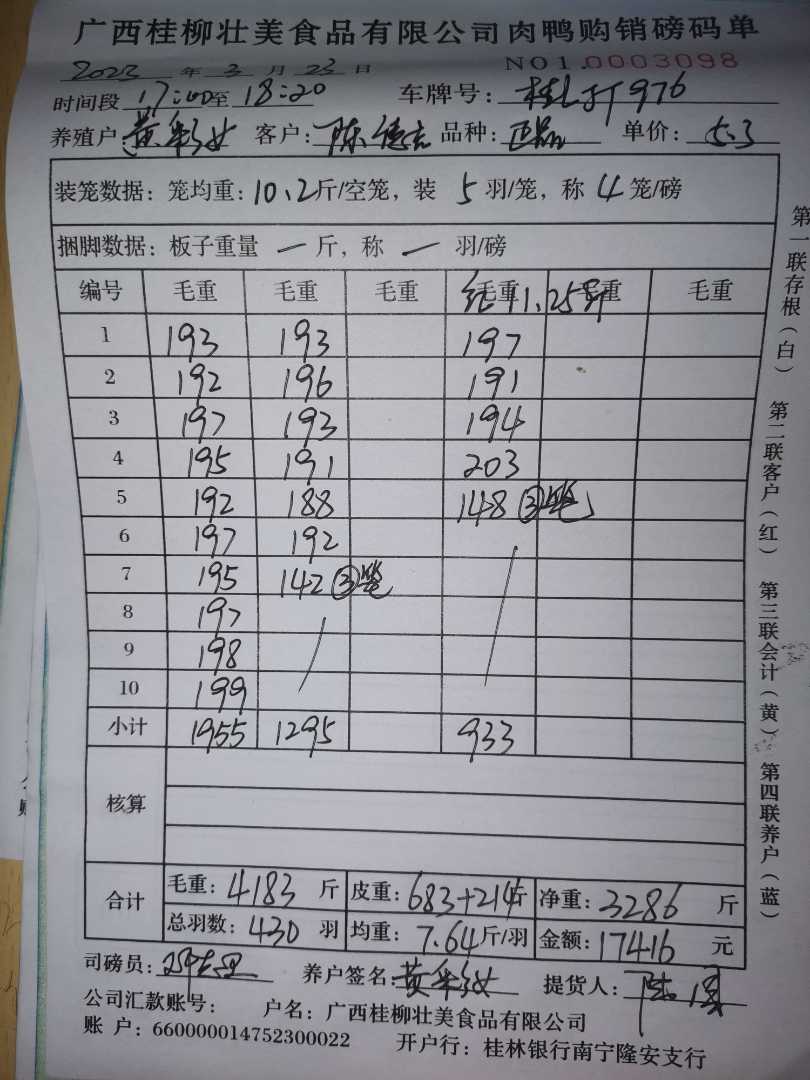 广西桂柳壮美食品有限公司肉鸭购销磅码单
2023 年 3 月 23 日 NO1.0003098
时间段 17:00至 18:20 车牌号: 桂 JT976
养殖户 黄彩女 客户: 陈德 品种: 正品 单价: 5.3
装笼数据: 笼均重: 10.2斤/空笼, 装 5 羽/笼, 称 4 笼/磅
捆脚数据: 板子重量 一 斤, 称 一 羽/磅
编号 毛重 毛重 毛重 毛重 毛重 毛重
红 11.25斤
1 193 193 197
2 192 196 191
3 197 193 194
4 195 191 203
5 192 188 148 ③笼
6 197 192
7 195 142 ③笼
8 197
9 198
10 199
小计 1955 1295 933
核算
合计 毛重: 4183 斤 皮重: 683+214斤 净重: 3286 斤
总羽数: 430 羽 均重: 7.64斤/羽 金额: 17416 元
司磅员: 养户签名: 黄彩女 提货人: 陈
公司汇款账号: 户名: 广西桂柳壮美食品有限公司
账 户: 660000014752300022 开户行: 桂林银行南宁隆安支行
第一联存根(白) 第二联客户(红) 第三联会计(黄) 第四联养户(蓝)